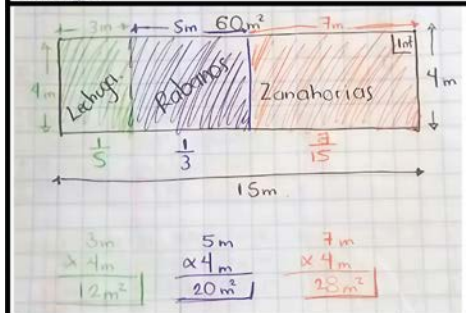 3m 5m 60m² 7m
1m²
4m Lechuga Rabanos Zanahorias 4m
1/5 1/3 7/15
15m
3m 5m 7m
x 4m x 4m x 4m
12m² 20m² 28m²